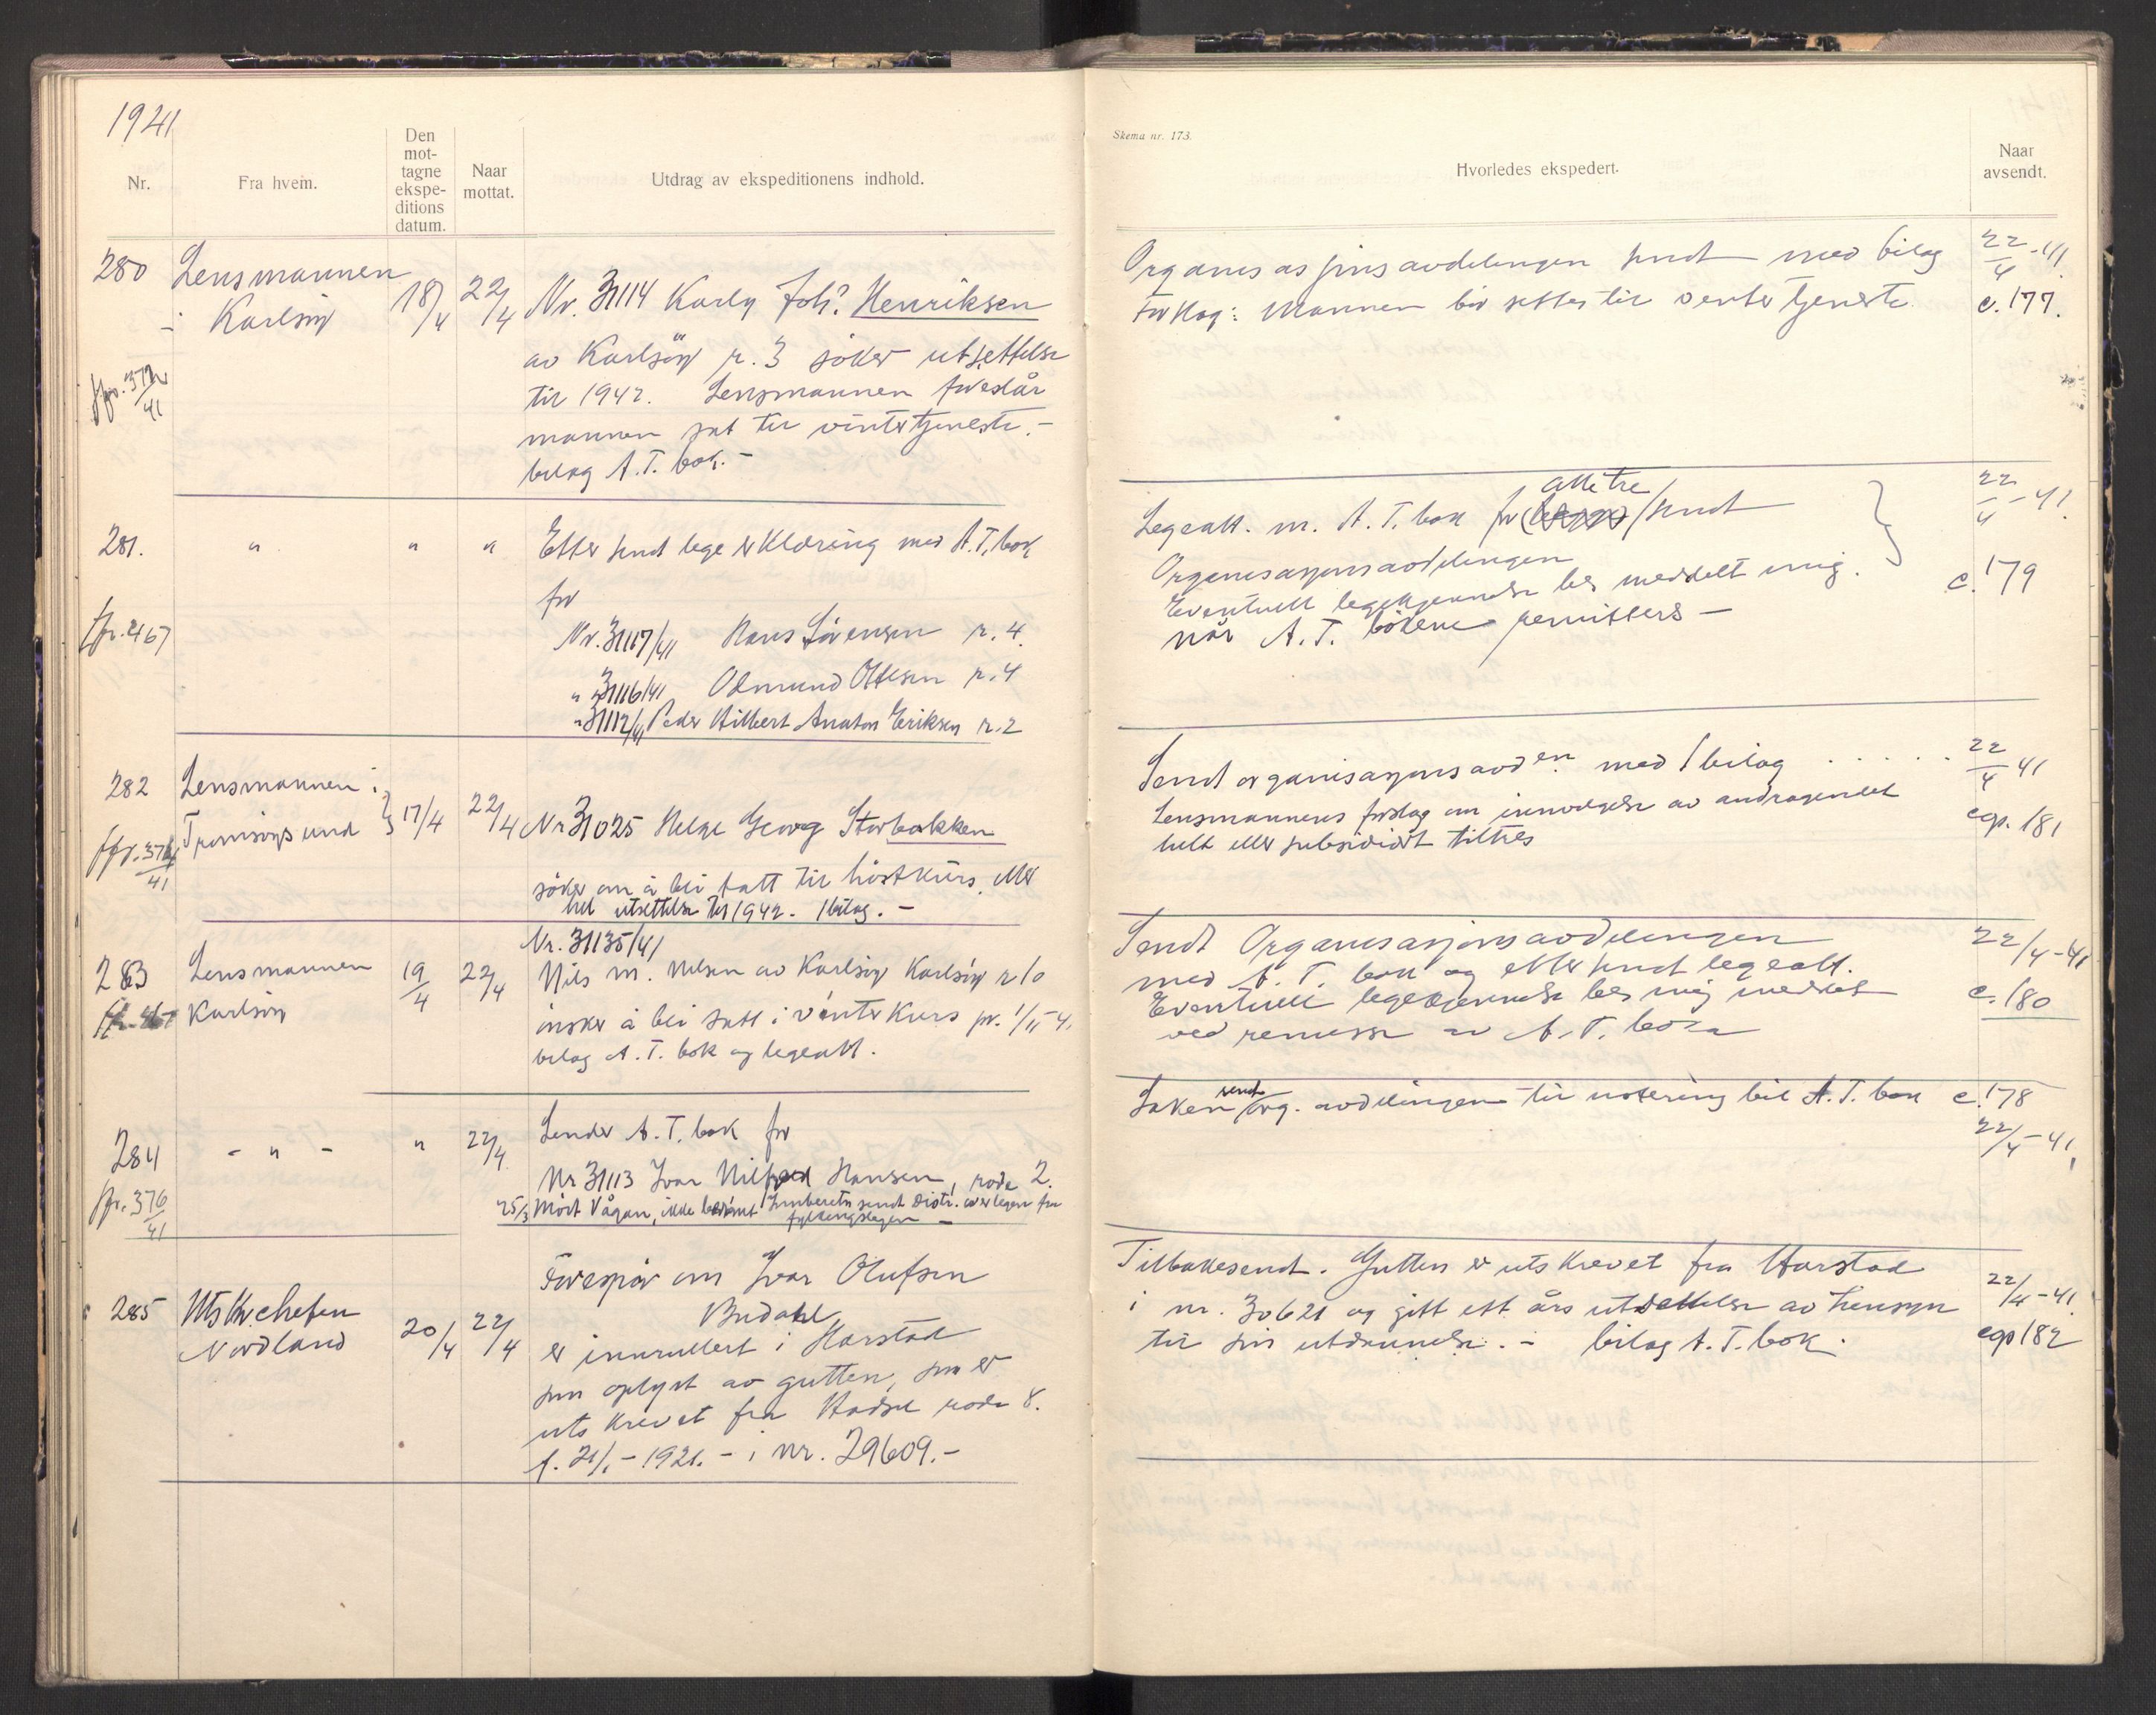 1941
Nr.
Fra hvem.
Den mot-
tagne
ekspe-
ditions
datum.
Naar
mottat.
Utdrag av ekspeditionens indhold.
280 Lensmannen
i Karlsöy 18/4 22/4 Nr. 31114 Karly Joh? Henriksen
av Karlsöy r. 3 söker utsettelse
til 1942. Lensmannen foreslår
mannen sat til vintertjeneste.-
bilag A.T. bok.-
fr. 372/41
281. " " " Etter sendt legeerklæring med A.T. bok
for
Nr. 31117/41 Hans Sörensen r. 4.
" 31116/41 Odmund Ottesen r. 4
" 31112/41 Peder Hilbert Anaton Eriksen r. 2
fr. 467
282 Lensmannen i
Tromsöysund 17/4 22/4 Nr 31025 Helge Georg Storbakken
söker om å bli satt til höstkurs. eller
hel utsettelse til 1942. 1 bilag. -
41
Nr. 31135/41
283 Lensmannen 19/4 22/4 Nils M. Nilsen av Karlsöy Karlsöy r 10
Karlsöy önsker å bli satt i vinterkurs pr. 1/11-41
bilag A.T. bok og legeatt.
284 - " - " 22/4 Sender A.T. bok for
Nr 31113 Ivar Hilfred Hansen, rode 2.
25/3 Mört Vågan, ikke bedömt. sendt Distr. overlegen fra
fylkingslegen -
fr. 376/41
285 Utskr.chefen
Nordland 20/4 22/4 Forespör om Ivar Olufsen
Budahl
er innrullert i Harstad
som oplyst av gutten, som er
utskrevet fra Hadsel rode 8.
f. 21/1-1921. - i nr. 29609.-
Skema nr. 173.
Hvorledes ekspedert.
Naar
avsendt.
Organisasjonsavdelingen sendt med bilag 22/4-41.
Forslag: Mannen bör settes til vintertjeneste. c. 177.
alle tre
Legeatt. m. A.T. bok for sendt 22/4-41.
Organisasjonsavdelingen
Eventuell legekjennelse bes meddelt mig. c. 179
når A.T. bökene remitters -
Sendt organisasjonsavd en med 1 bilag . . . . . 22/4 41
Lensmannens forslag om innvilgelse av andragendet cop. 181
helt eller subsidiært tiltres
Sendt Organisasjonsavdelingen 22/4-41
med A.T. bok og etter sendt legeatt.
Eventuell legekjennelse bes mig meddelt c. 180
ved remisse av A.T. boka
sendt
Saken org. avdelingen til notering bil A.T. bok c. 178
22/4-41
Tilbakesendt. Gutten er utskrevet fra Harstad
i nr. 30621 og gitt ett års utsettelse av hensyn 22/4-41.
til sin utdannelse. - bilag A.T. bok. cop 182